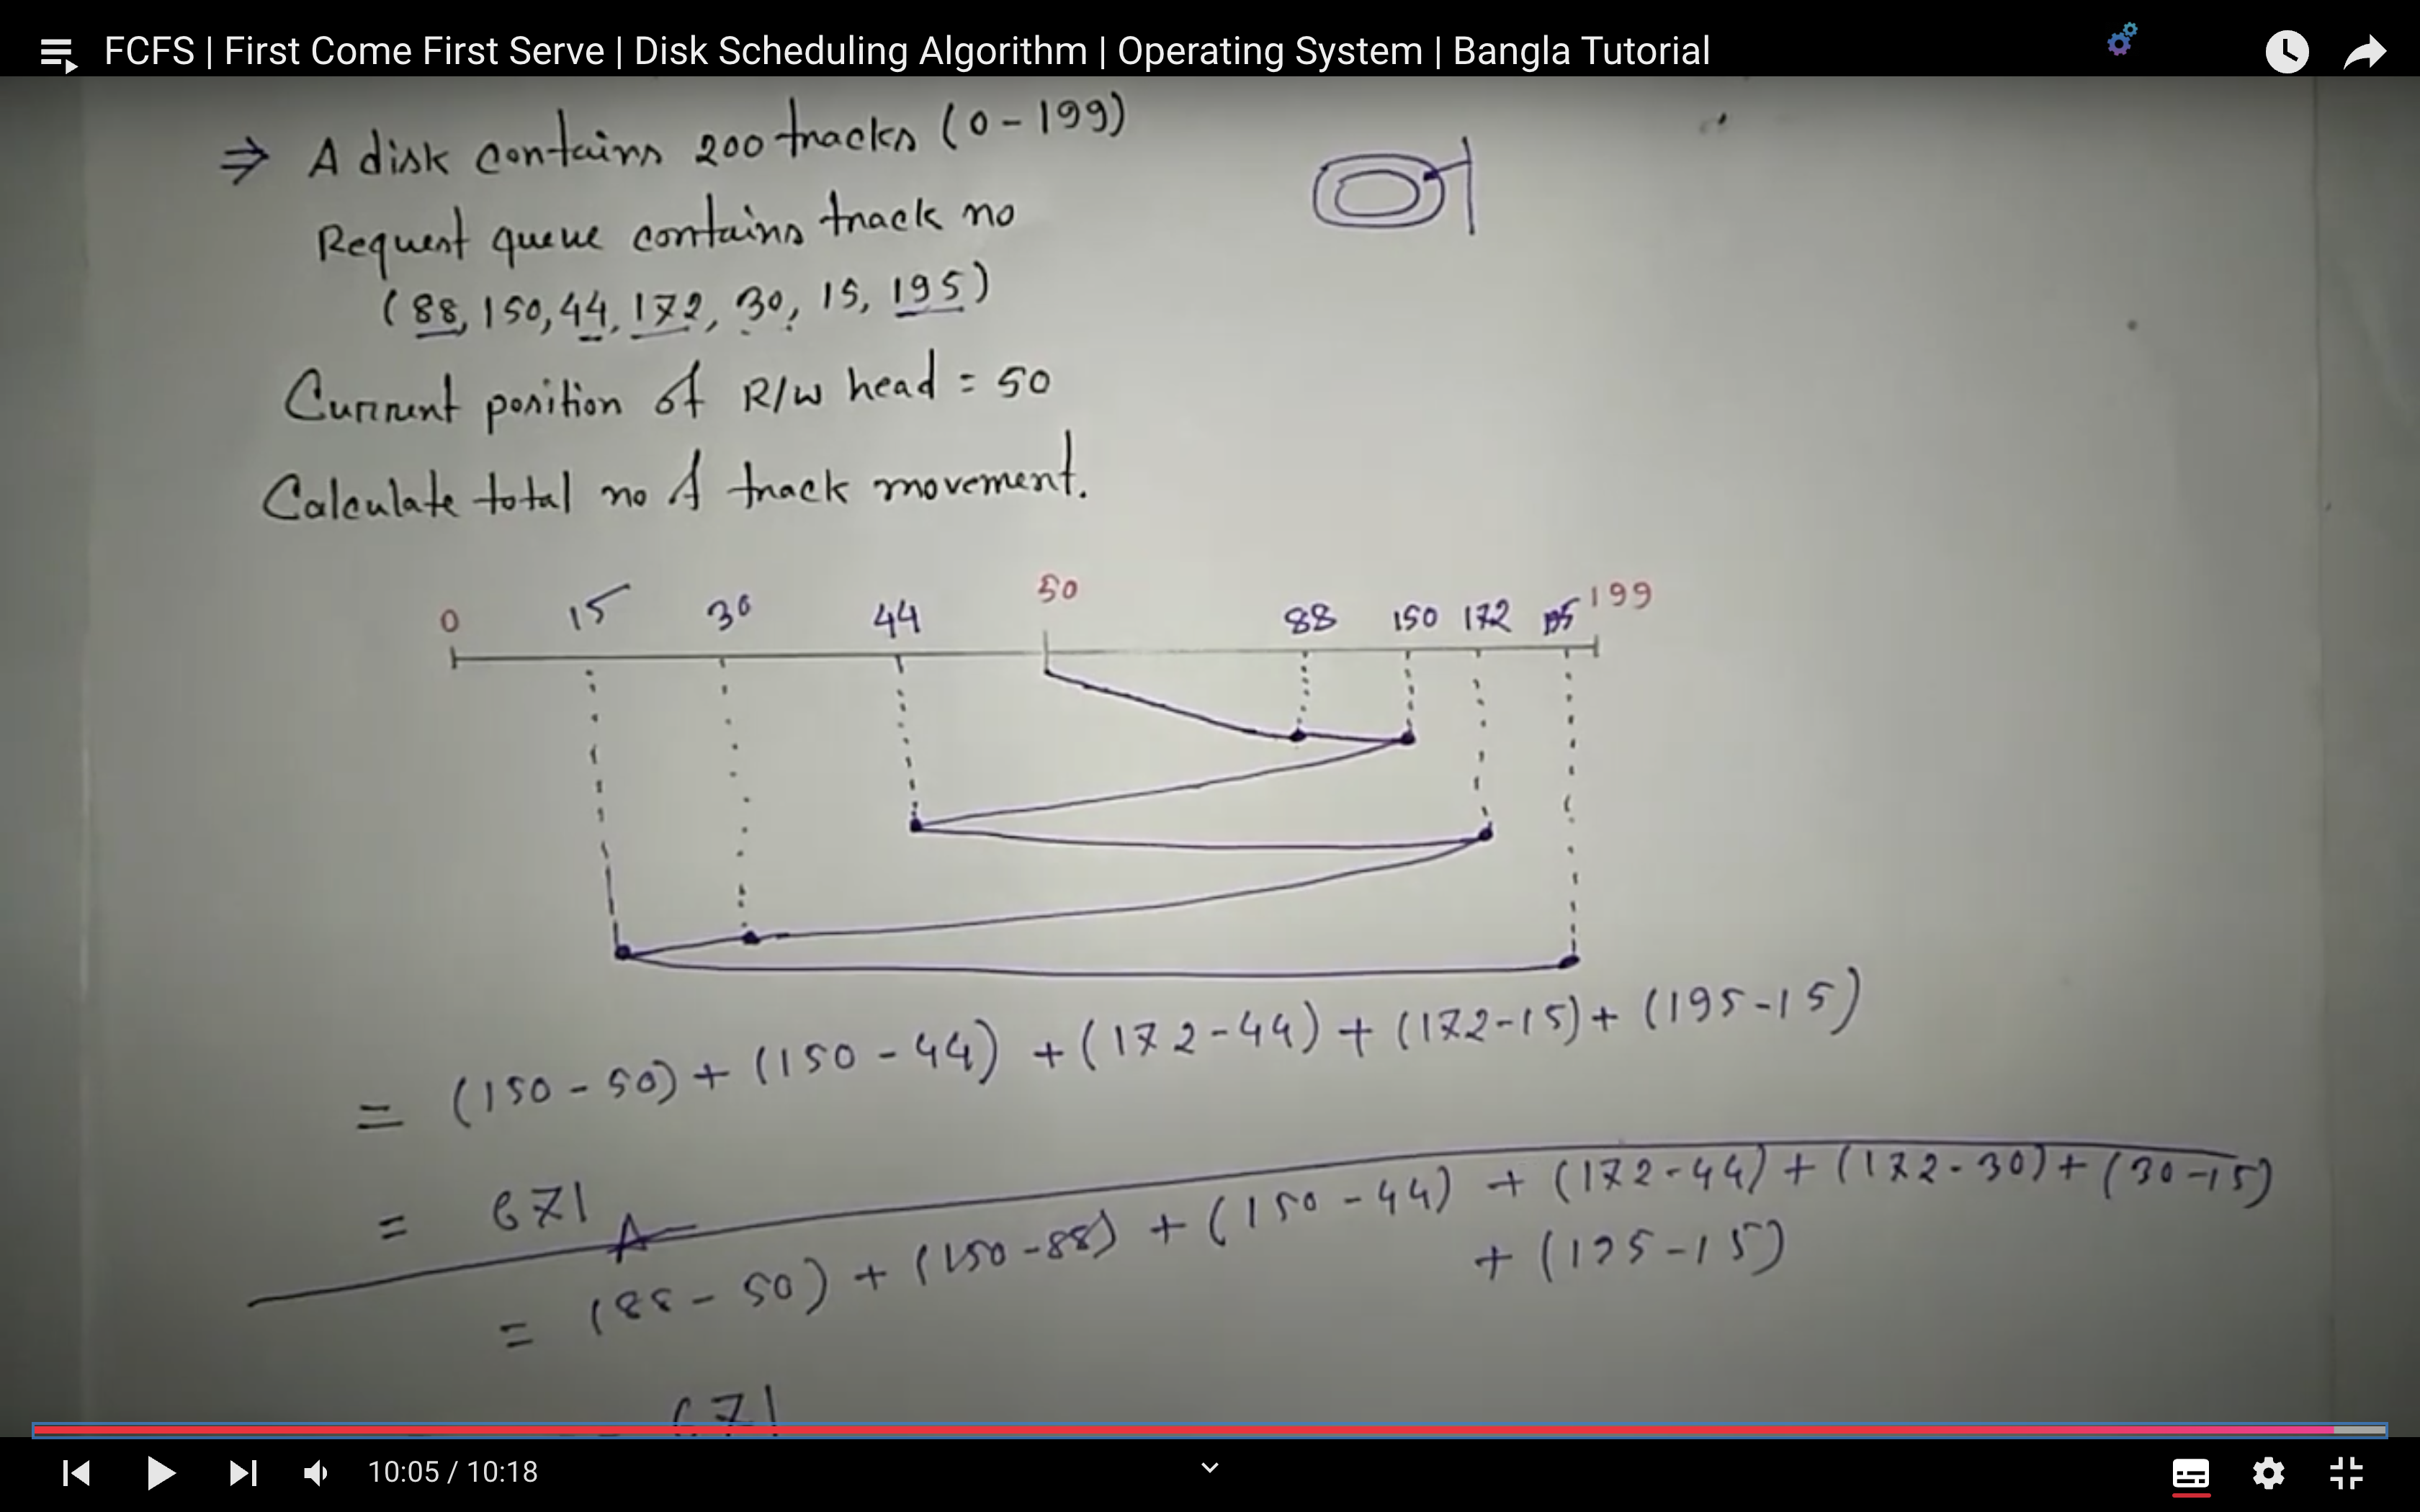 FCFS | First Come First Serve | Disk Scheduling Algorithm | Operating System | Bangla Tutorial
⇒ A disk contains 200 tracks (0-199)
Request queue contains track no
(88, 150, 44, 172, 30, 15, 195)
Current position of R/W head = 50
Calculate total no of track movement.
0 15 30 44 50 88 150 172 195 199
= (150-50) + (150-44) + (172-44) + (172-15) + (195-15)
= 671
= (88-50) + (150-88) + (150-44) + (172-44) + (172-30) + (30-15)
+ (195-15)
671
10:05 / 10:18